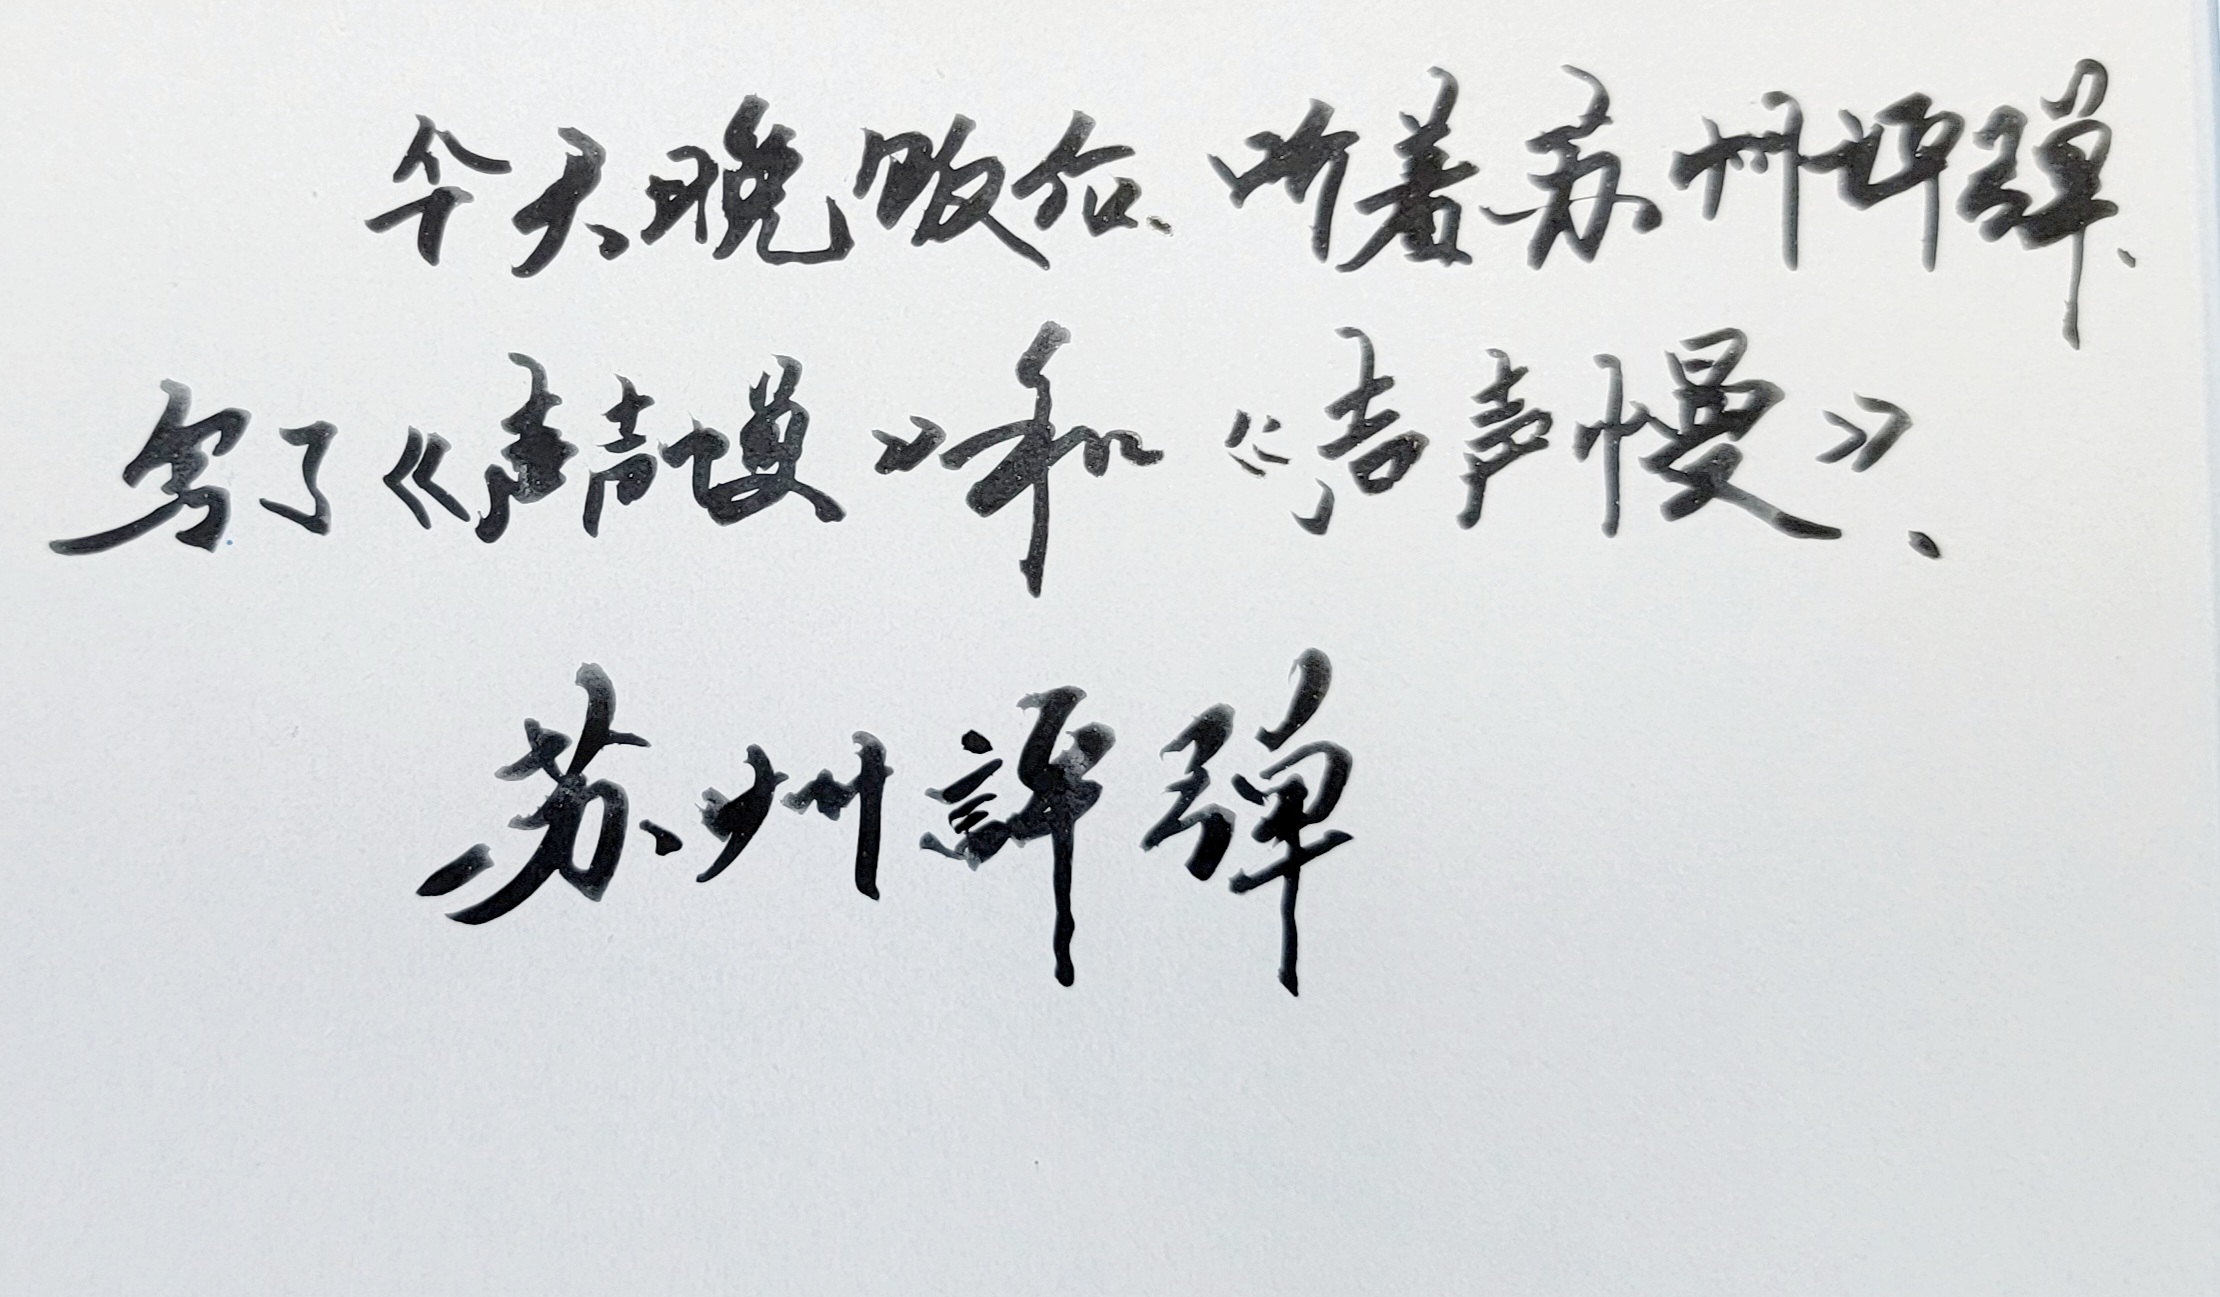 今天晚饭后、听着苏州评弹、
写了《声声慢》和《声声慢》、
苏州評弹